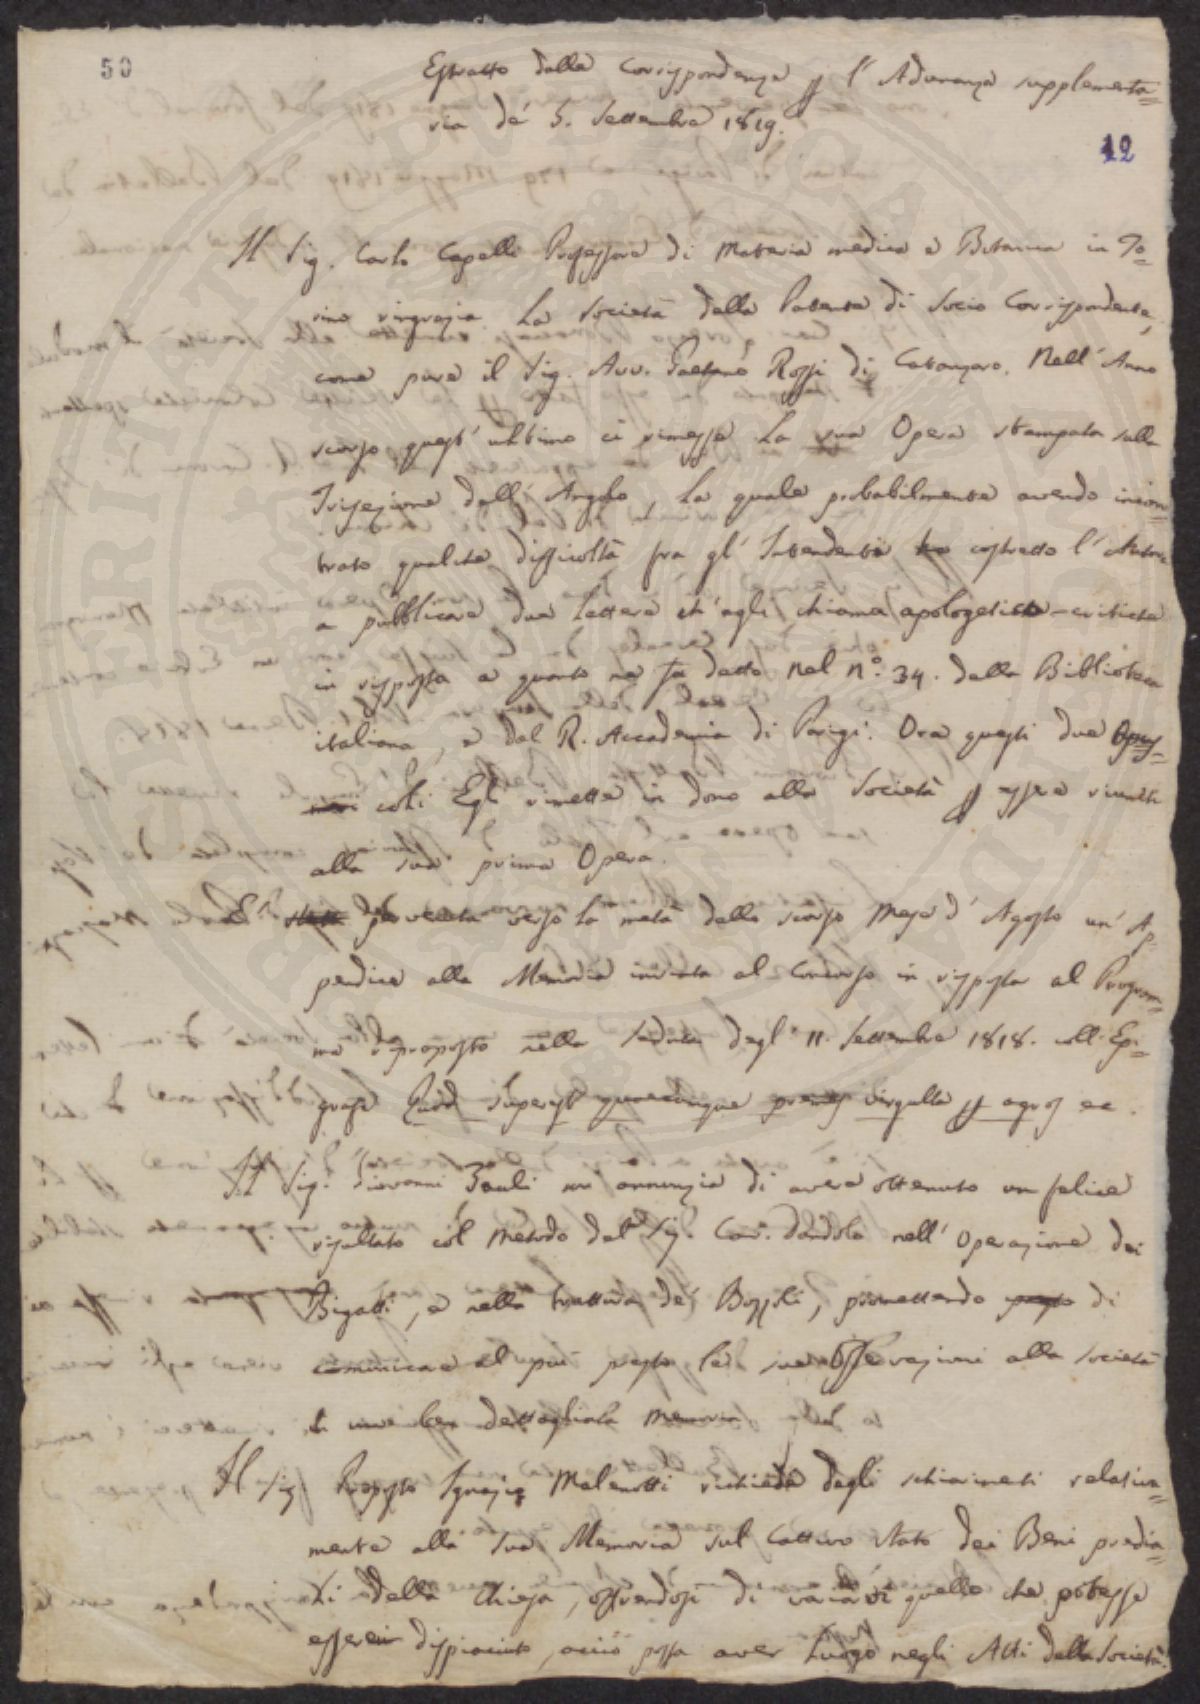 50
Estratto della Corrispondenza p l'Adunanza supplementa=
ria de' 5. Settembre 1819.
12
Il Sig. Carlo Capelli Professore di Materia medica e Botanica in To=
rino ringrazia la Società della Patente di Socio Corrispondente,
come pure il Sig. Avv. Gaetano Rossi di Catanzaro. Nell'Anno
scorso quest'ultimo ci rimesse la sua Opera stampata sulla
Trisezione dell'Angolo, la quale probabilmente avendo incon=
trato qualche difficoltà fra gl'Intendenti ha costretto l'Autore
a pubblicare due lettere ch'egli chiama apologetico-critiche
in risposta a quanto ne fu detto nel n.º 34. della Biblioteca
italiana, e dal R. Accademia di Parigi. Ora questi due Opus=
coli Egli rimette in dono alla Società p essere riuniti
alla sua prima Opera.
E' pervenuta verso la metà dello scorso Mese d'Agosto un'Ap=
pendice alla Memoria inviata al Concorso in risposta al Program=
ma proposto nella Seduta degl'11. Settembre 1818. coll'Epi=
grafe Quod superest quaecunque premes virgulta p agros ec.
Il Sig. Giovanni Zauli ci annunzia di avere ottenuto un felice
risultato col Metodo del Sig. Cav. Dandolo nell'Operazione dei
Bigatti, e nella trattura de' Bozzoli, promettendo di
comunicare al più presto le sue Osservazioni alla Società
in una ben dettagliata Memoria
Il Sig. Proposto Ignazio Malenotti richiede degli schiarimenti relativa=
mente alla sua Memoria sul Cattivo stato dei Beni predia=
li della Chiesa, offrendosi di variarvi quello che potesse
esserci dispiaciuto, acciò possa aver luogo negli Atti della Società.